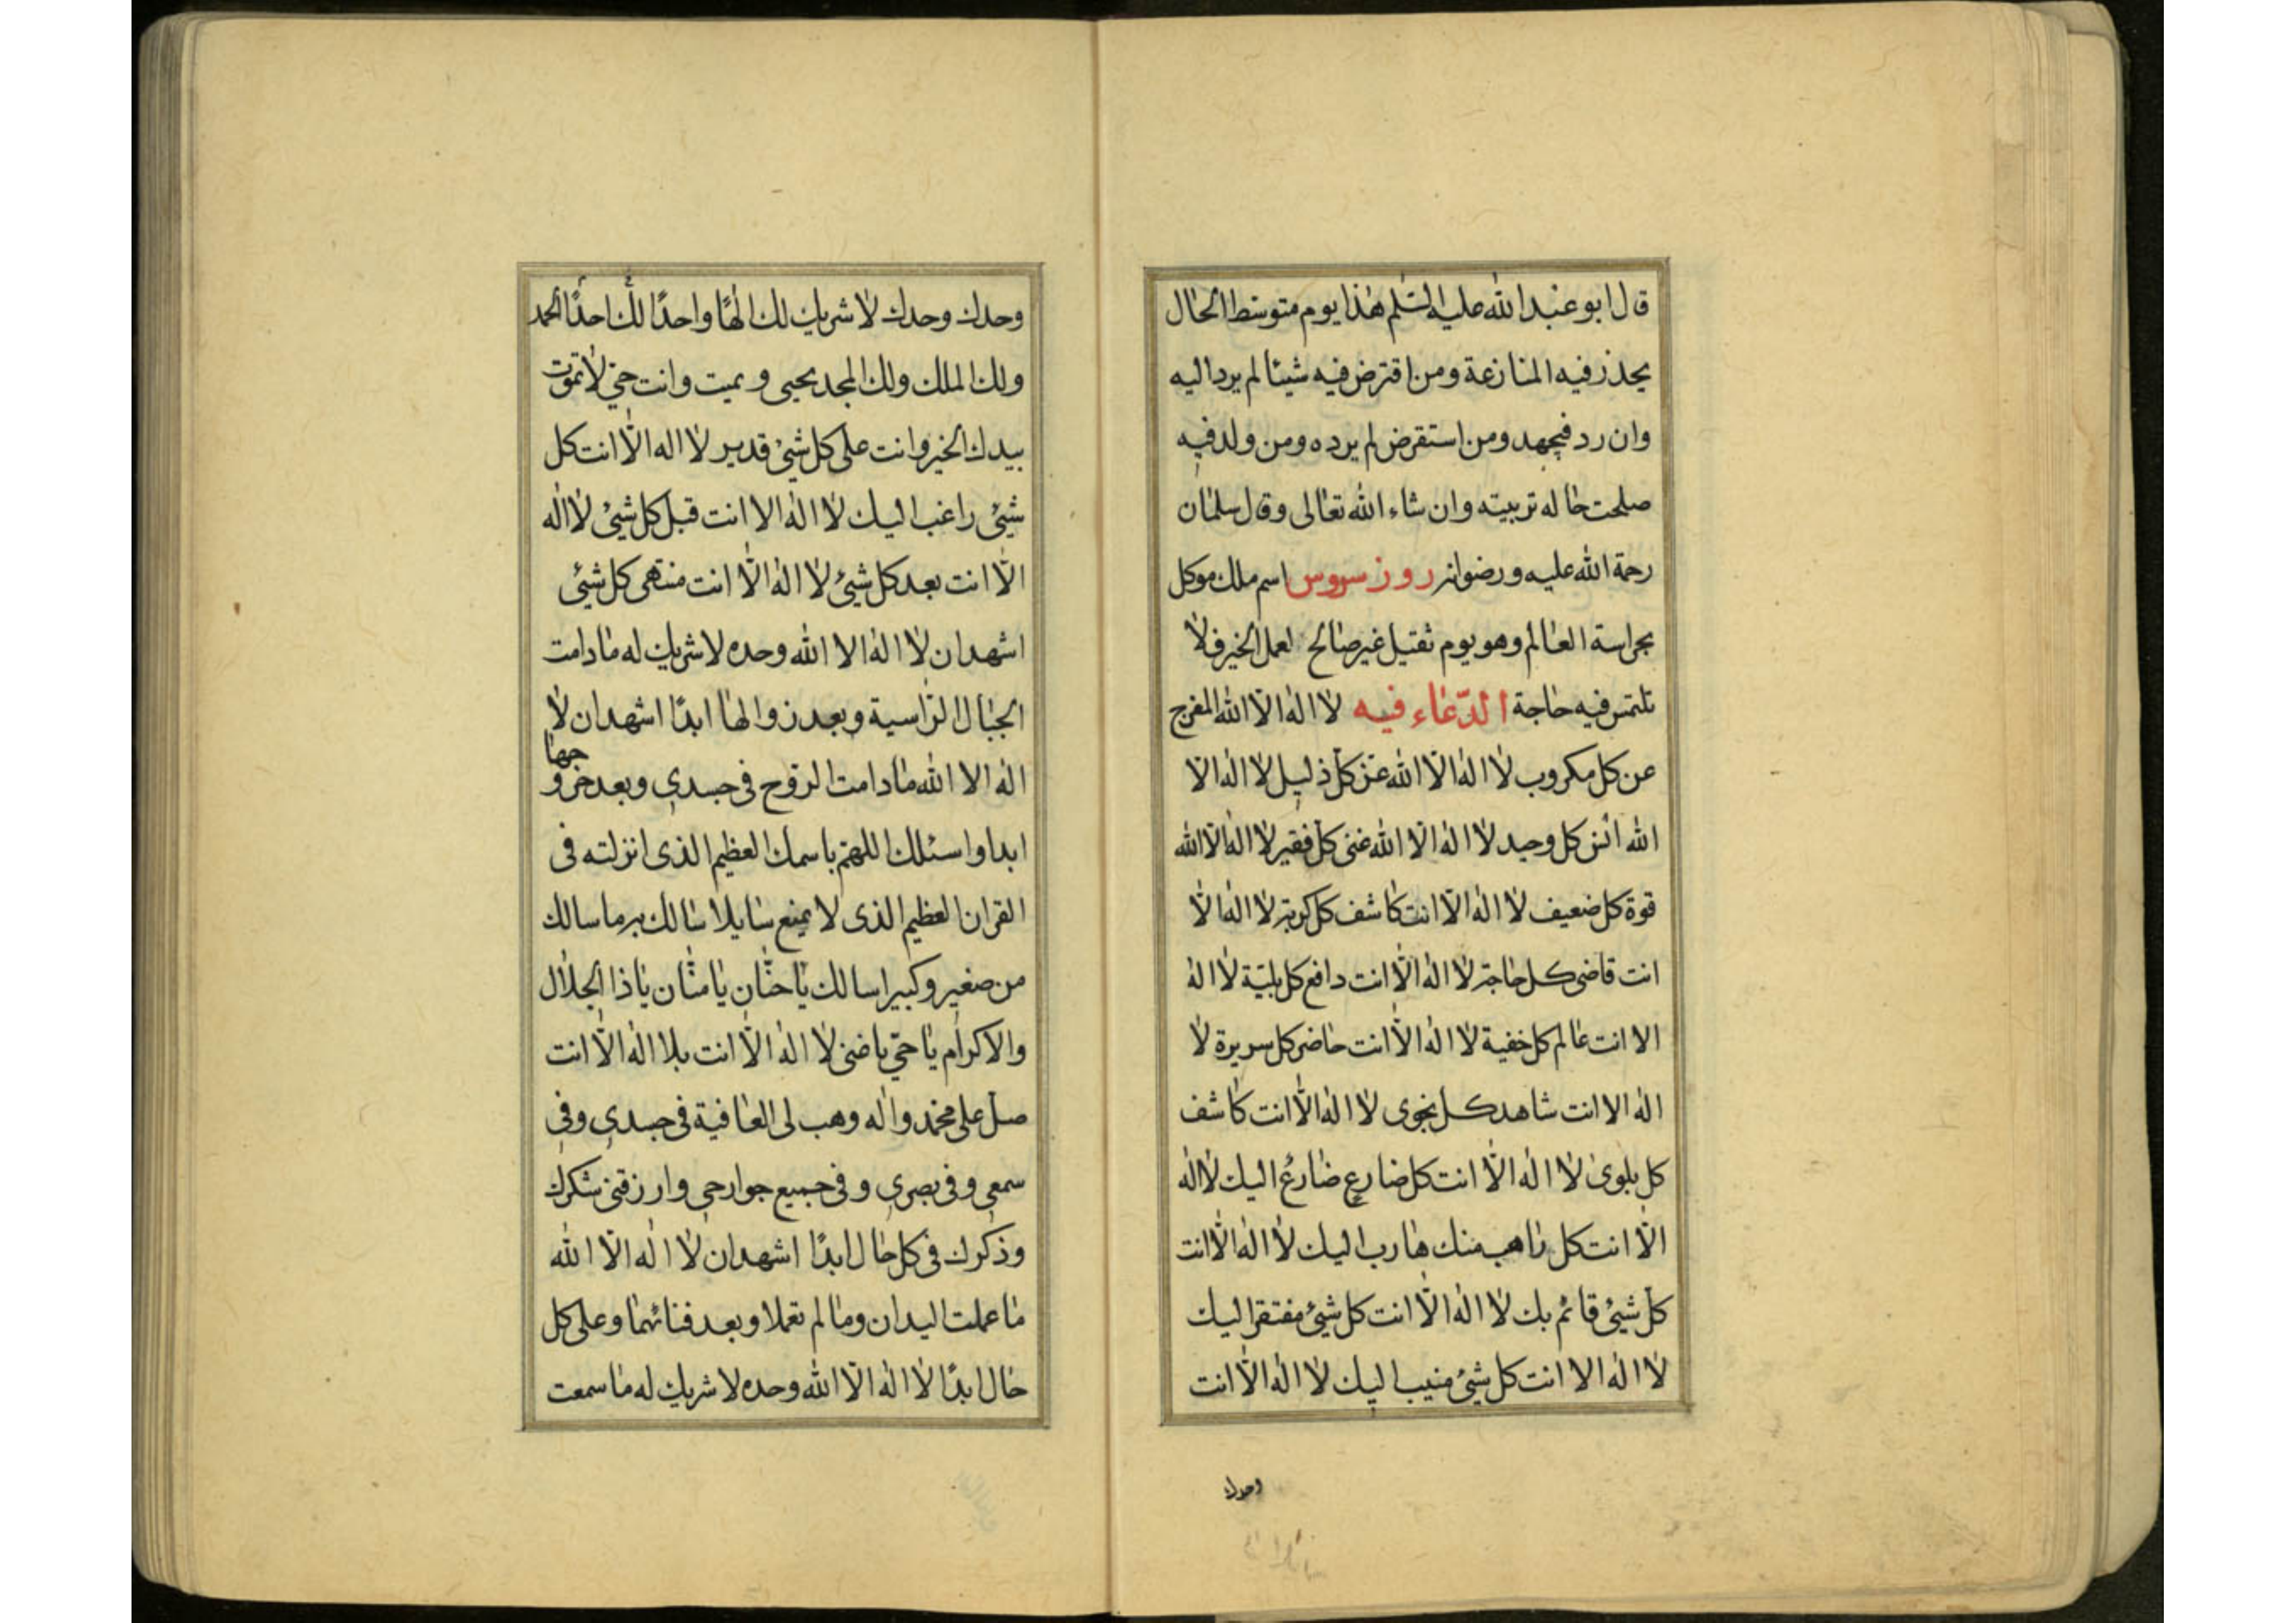 قال ابو عبد الله عليه السلم هذا يوم متوسط الحال
يحذر فيه المنازعة ومن اقترض فيه شيئا لم يرد اليه
وان رد فبجهد ومن استقرض لم يرده ومن ولد فيه
صلحت حاله تربيته وان شاء الله تعالى وقال سلمان
رحمة الله عليه ورضوانه روز سروس اسم ملك موكل
بحراسة العالم وهو يوم ثقيل غير صالح لعمل الخير فلا
تلتمس فيه حاجة الدعاء فيه لا اله الا الله المفرج
عن كل مكروب لا اله الا الله عز كل ذليل لا اله الا
الله انس كل وحيد لا اله الا الله غنى كل فقير لا اله الا الله
قوة كل ضعيف لا اله الا انت كاشف كل كربة لا اله الا
انت قاضى كل حاجة لا اله الا انت دافع كل بلية لا اله
الا انت عالم كل خفية لا اله الا انت حاضر كل سريرة لا
اله الا انت شاهد كل نجوى لا اله الا انت كاشف
كل بلوى لا اله الا انت كل ضارع ضارع اليك لا اله
الا انت كل راهب منك هارب اليك لا اله الا انت
كل شيئ قائم بك لا اله الا انت كل شيئ مفتقر اليك
لا اله الا انت كل شيئ منيب اليك لا اله الا انت
وحدك
وحدك وحدك لا شريك لك الها واحدا لك احدا الحمد
ولك الملك ولك المجد يحيى ويميت وانت حي لا تموت
بيدك الخير وانت على كل شيئ قدير لا اله الا انت كل
شيئ راغب اليك لا اله الا انت قبل كل شيئ لا اله
الا انت بعد كل شيئ لا اله الا انت منتهى كل شيئ
اشهد ان لا اله الا الله وحده لا شريك له ما دامت
الجبال الراسية وبعد زوالها ابدا اشهد ان لا
اله الا الله ما دامت الروح في جسدي وبعد خروجها
ابدا واسئلك اللهم باسمك العظيم الذى انزلته فى
القران العظيم الذى لا يمنع سايلا سالك به ما سالك
من صغير وكبير اسالك يا حنان يا منان يا ذا الجلال
والاكرام يا حي يا لا اله الا انت بلا اله الا انت
صل على محمد واله وهب لى العافية فى جسدي وفي
سمعي وفى بصري وفى جميع جوارحي وارزقني شكرك
وذكرك فى كل حال ابدا اشهد ان لا اله الا الله
ما عملت اليدان وما لم تعملا وبعد فنائهما وعلى كل
حال ابدا لا اله الا الله وحده لا شريك له ما سمعت